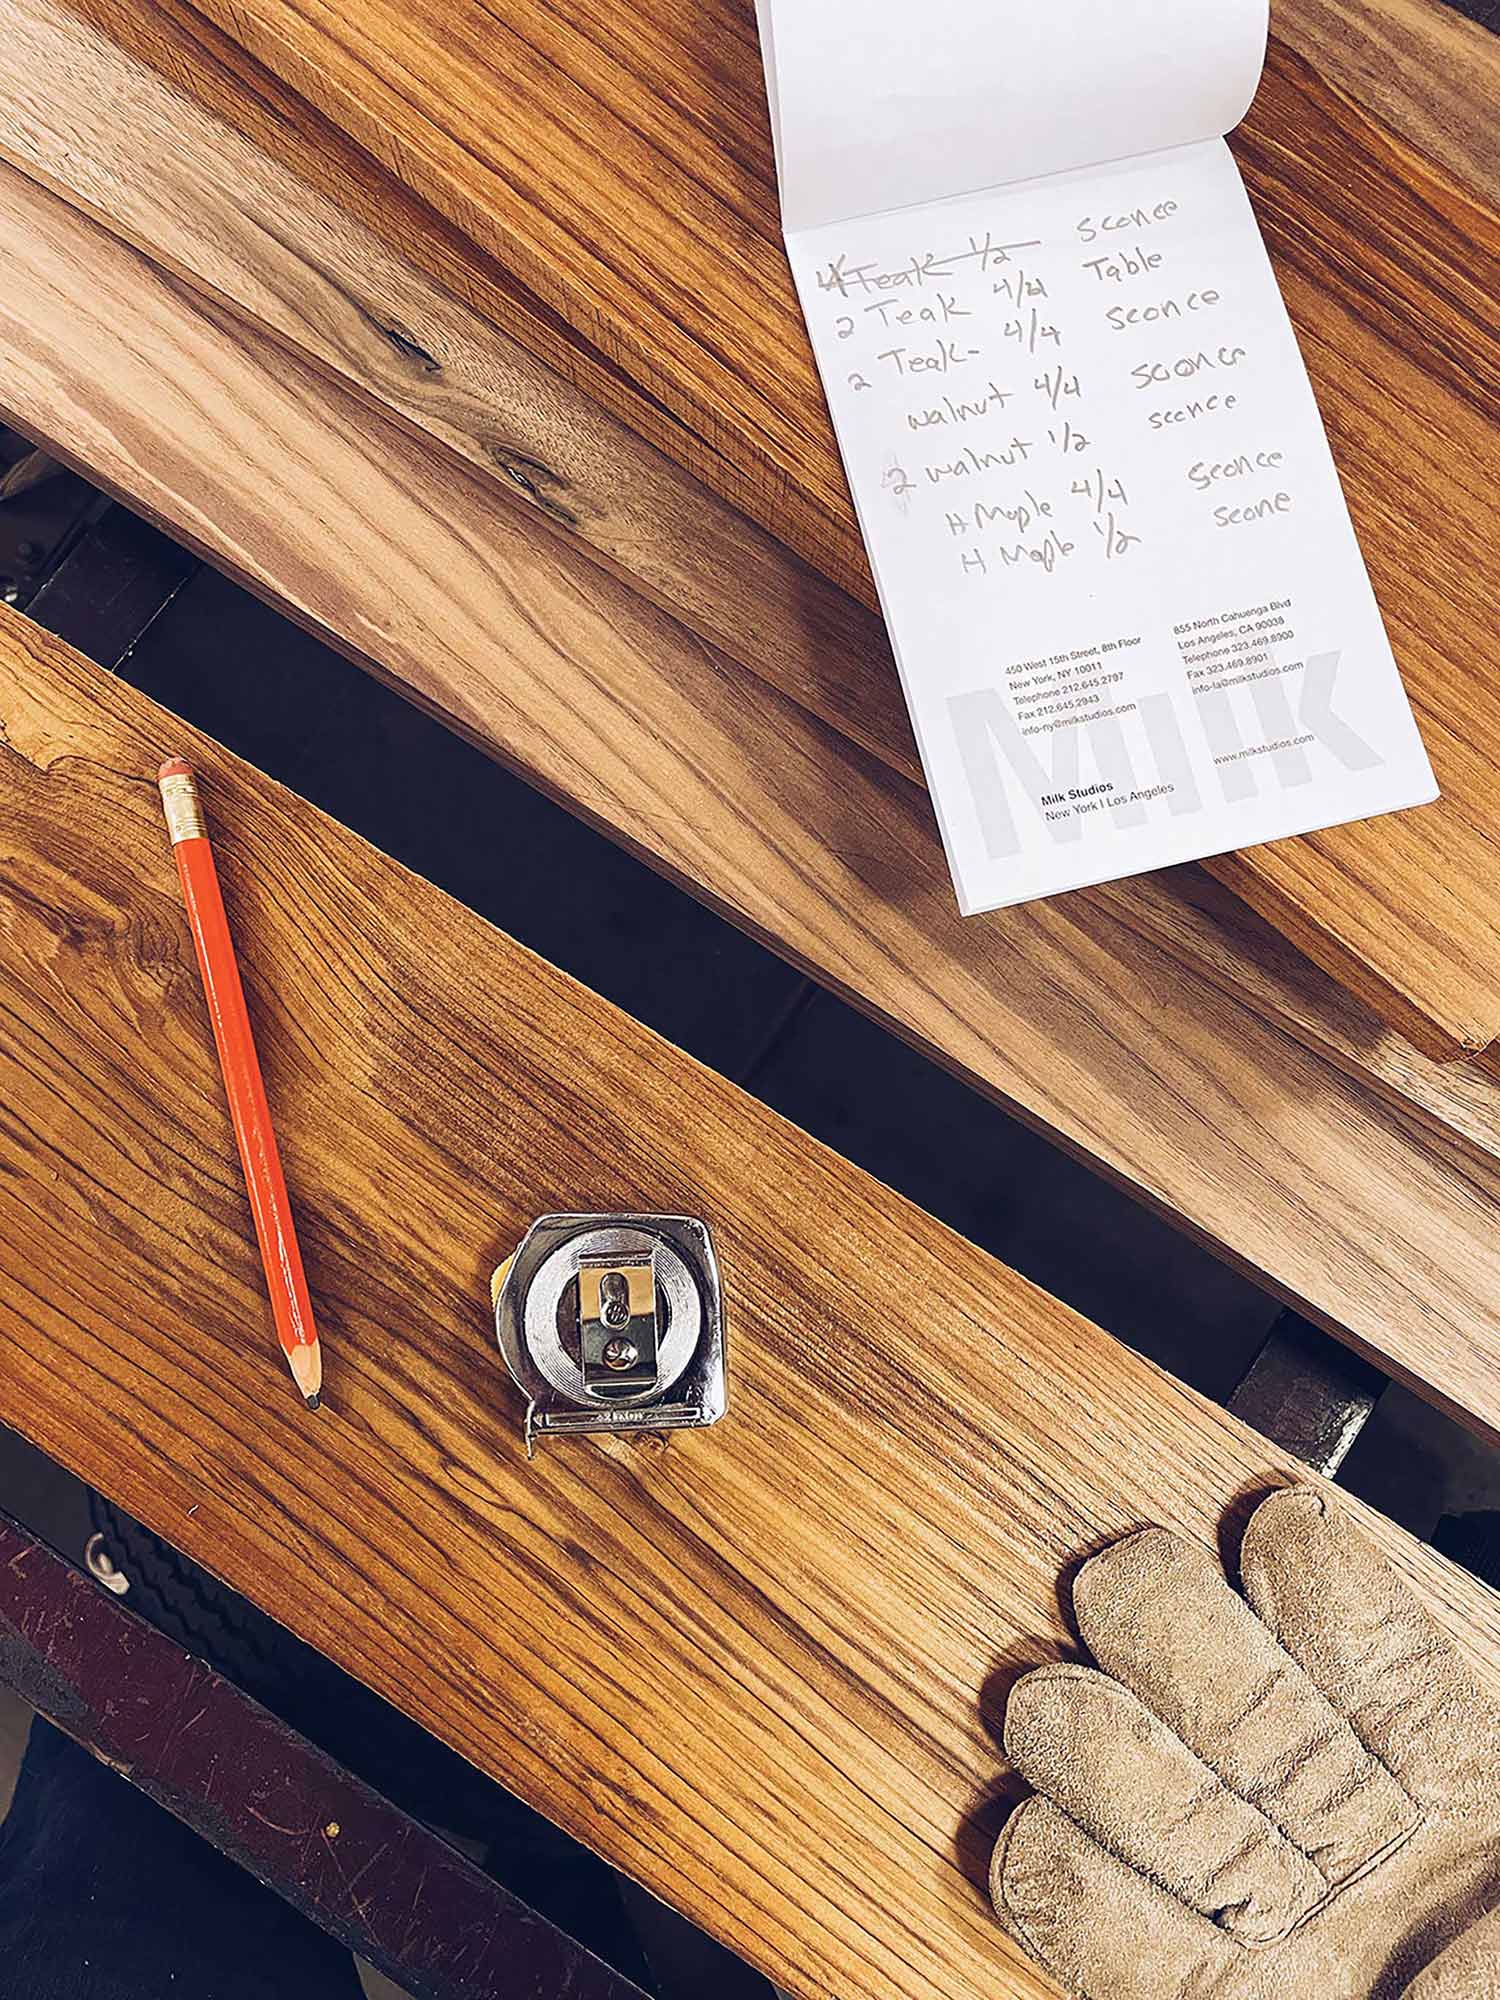 Teak 1/2 sconce
2 Teak 4/4 Table
2 Teak - 4/4 sconce
walnut 4/4 sconce
2 walnut 1/2 sconce
H Maple 4/4 sconce
H Maple 1/2 scone
450 West 15th Street, 8th Floor
New York, NY 10011
Telephone 212.645.2797
Fax 212.645.2943
info-ny@milkstudios.com
855 North Cahuenga Blvd
Los Angeles, CA 90038
Telephone 323.469.8900
Fax 323.469.8901
info-la@milkstudios.com
www.milkstudios.com
Milk
Milk Studios
New York | Los Angeles